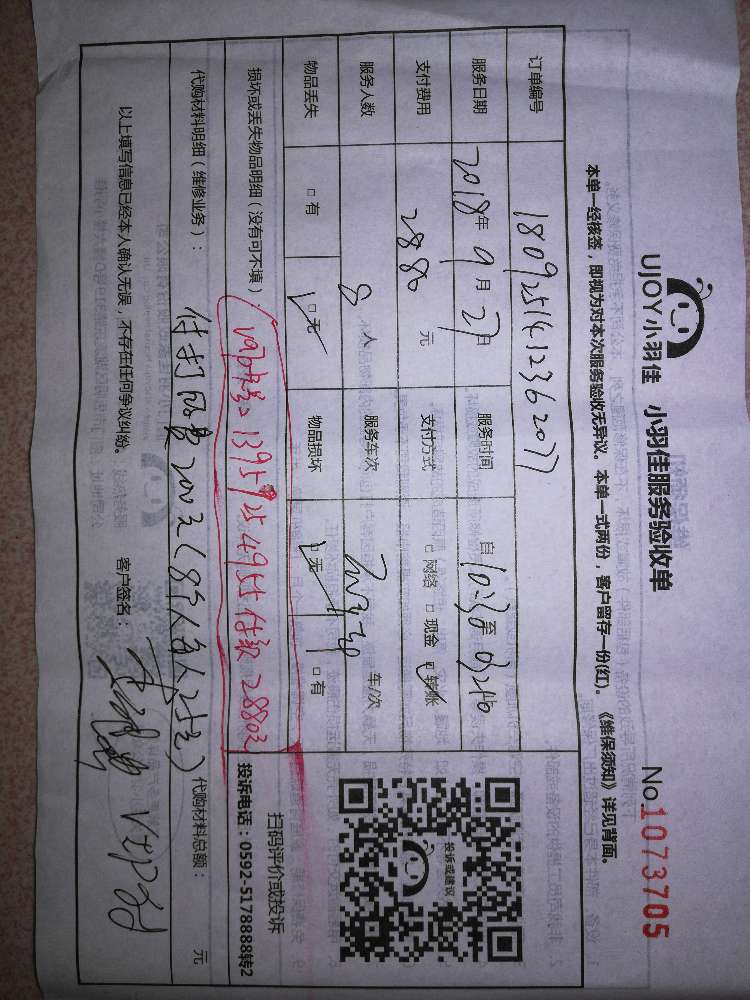 UJOY小羽佳 小羽佳服务验收单 No.1073705
本单一经核签，即视为对本次服务验收无异议。本单一式两份，客户留存一份(红)。《维保须知》详见背面。
订单编号 180925141236207
服务日期 2018年9月27日 服务时间 自10:30至
支付费用 2880元 支付方式 □网络 □现金 □转账
服务人数 8人 服务车次 车/次
物品丢失 □有 □无 物品损坏 □无 □有
损坏或丢失物品明细（没有可不填）： 13959254955付款2880元
代购材料明细（维修业务）： 200元(8个人每人25元) 代购材料总额： 元
以上填写信息已经本人确认无误，不存在任何争议纠纷。 客户签名：
投诉或建议
扫码评价或投诉
投诉电话：0592-5178888转2